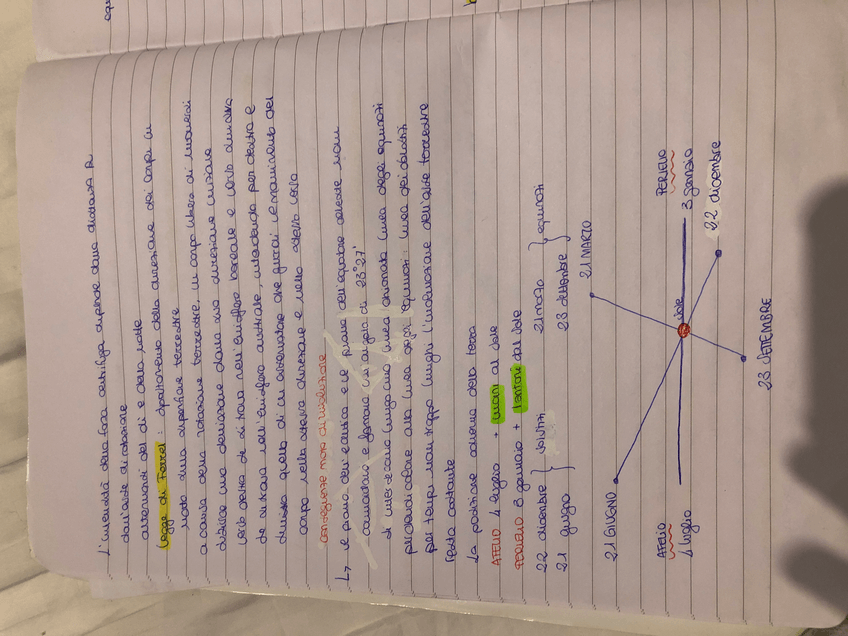 L'intensità della forza centrifuga dipende dalla distanza R
dall'asse di rotazione
alternanza del dì e della notte
Legge di Ferrel: spostamento della direzione dei corpi in
moto sulla superficie terrestre
a causa della rotazione terrestre, un corpo libero di muoversi
subisce una deviazione dalla sua direzione iniziale
verso destra se si trova nell'emisfero boreale e verso sinistra
se si trova nell'emisfero australe, intendendo per destra e
sinistra quella di un osservatore che guardi il movimento del
corpo nella stessa direzione e nello stesso verso
conseguenze moto di rivoluzione
↳ il piano dell'eclittica e il piano dell'equatore celeste non
coincidono e formano un angolo di 23°27'
si intersecano lungo una linea chiamata linea degli equinozi
perpendicolare alla linea degli equinozi: linea dei solstizi
per tempi non troppo lunghi l'inclinazione dell'asse terrestre
resta costante
La posizione della terra
AFELIO 4 luglio + vicini al sole
PERIELIO 3 gennaio + lontane dal sole
22 dicembre } solstizi 21 marzo } equinozi
21 giugno 23 settembre
21 GIUGNO 21 MARZO
AFELIO PERIELIO
4 luglio sole 3 Gennaio
22 dicembre
23 SETTEMBRE